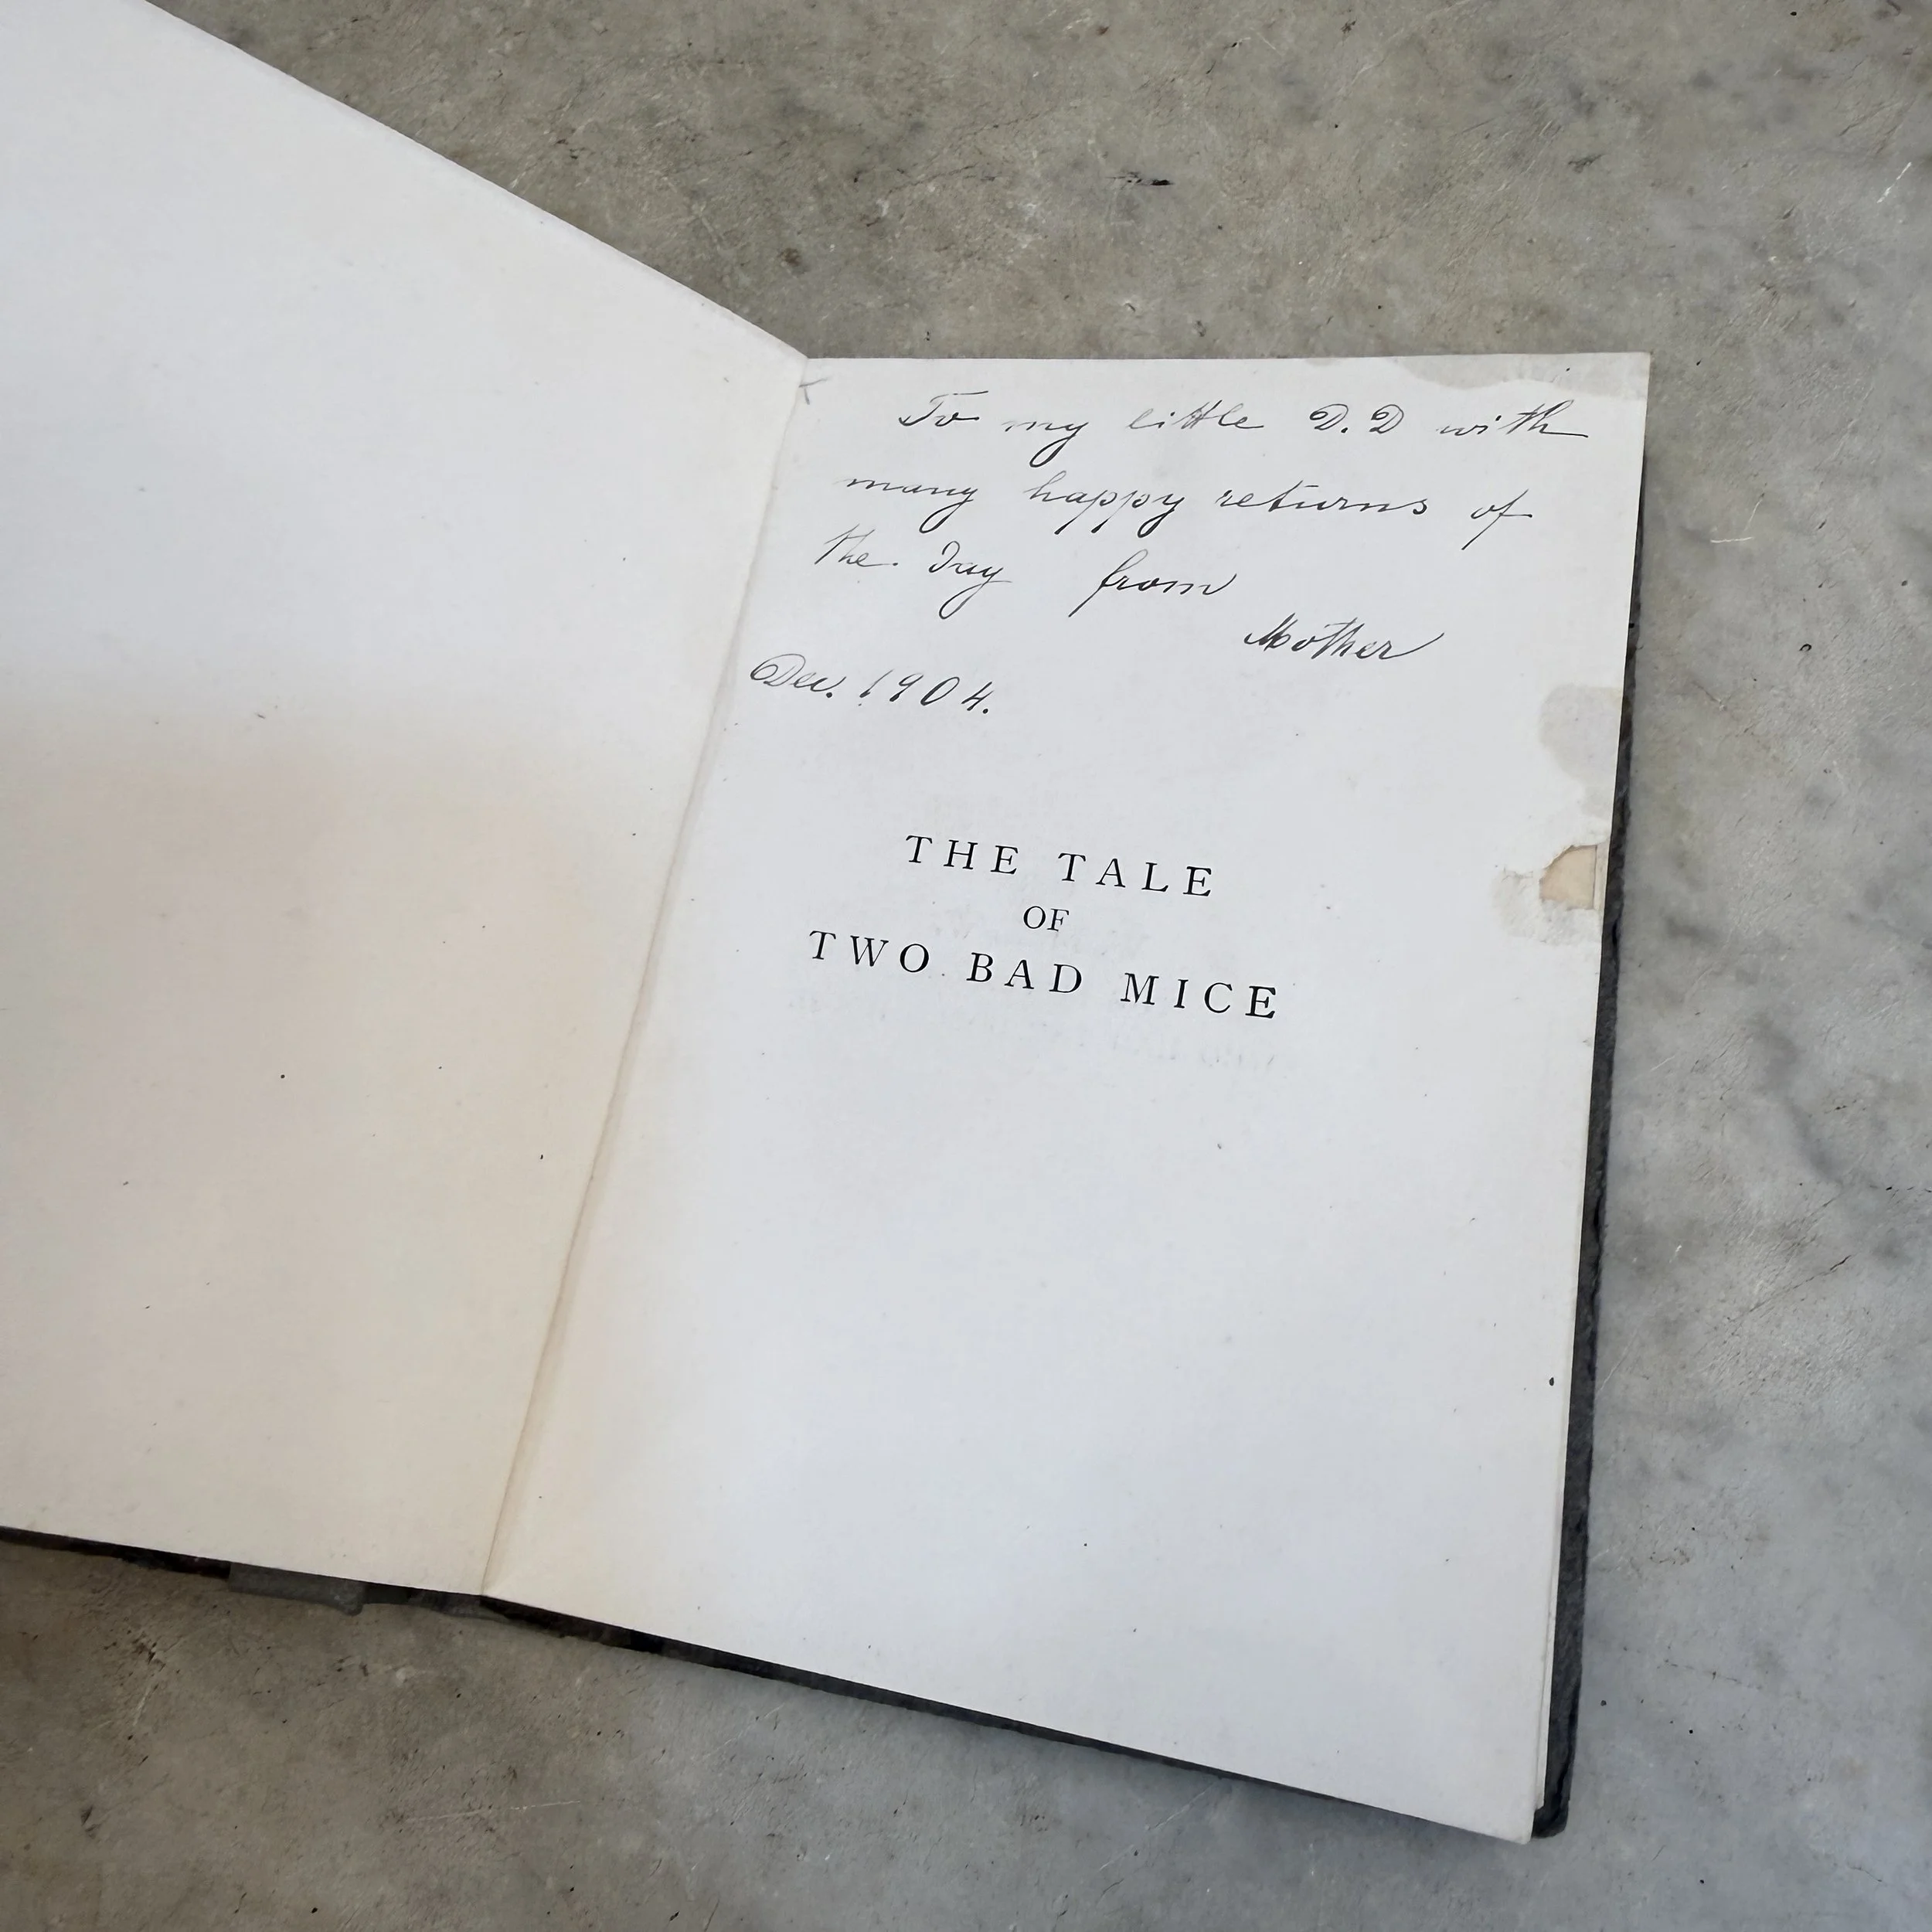 To my little D.D with
many happy returns of
the day from
Mother
Dec. 1904.
THE TALE
OF
TWO BAD MICE